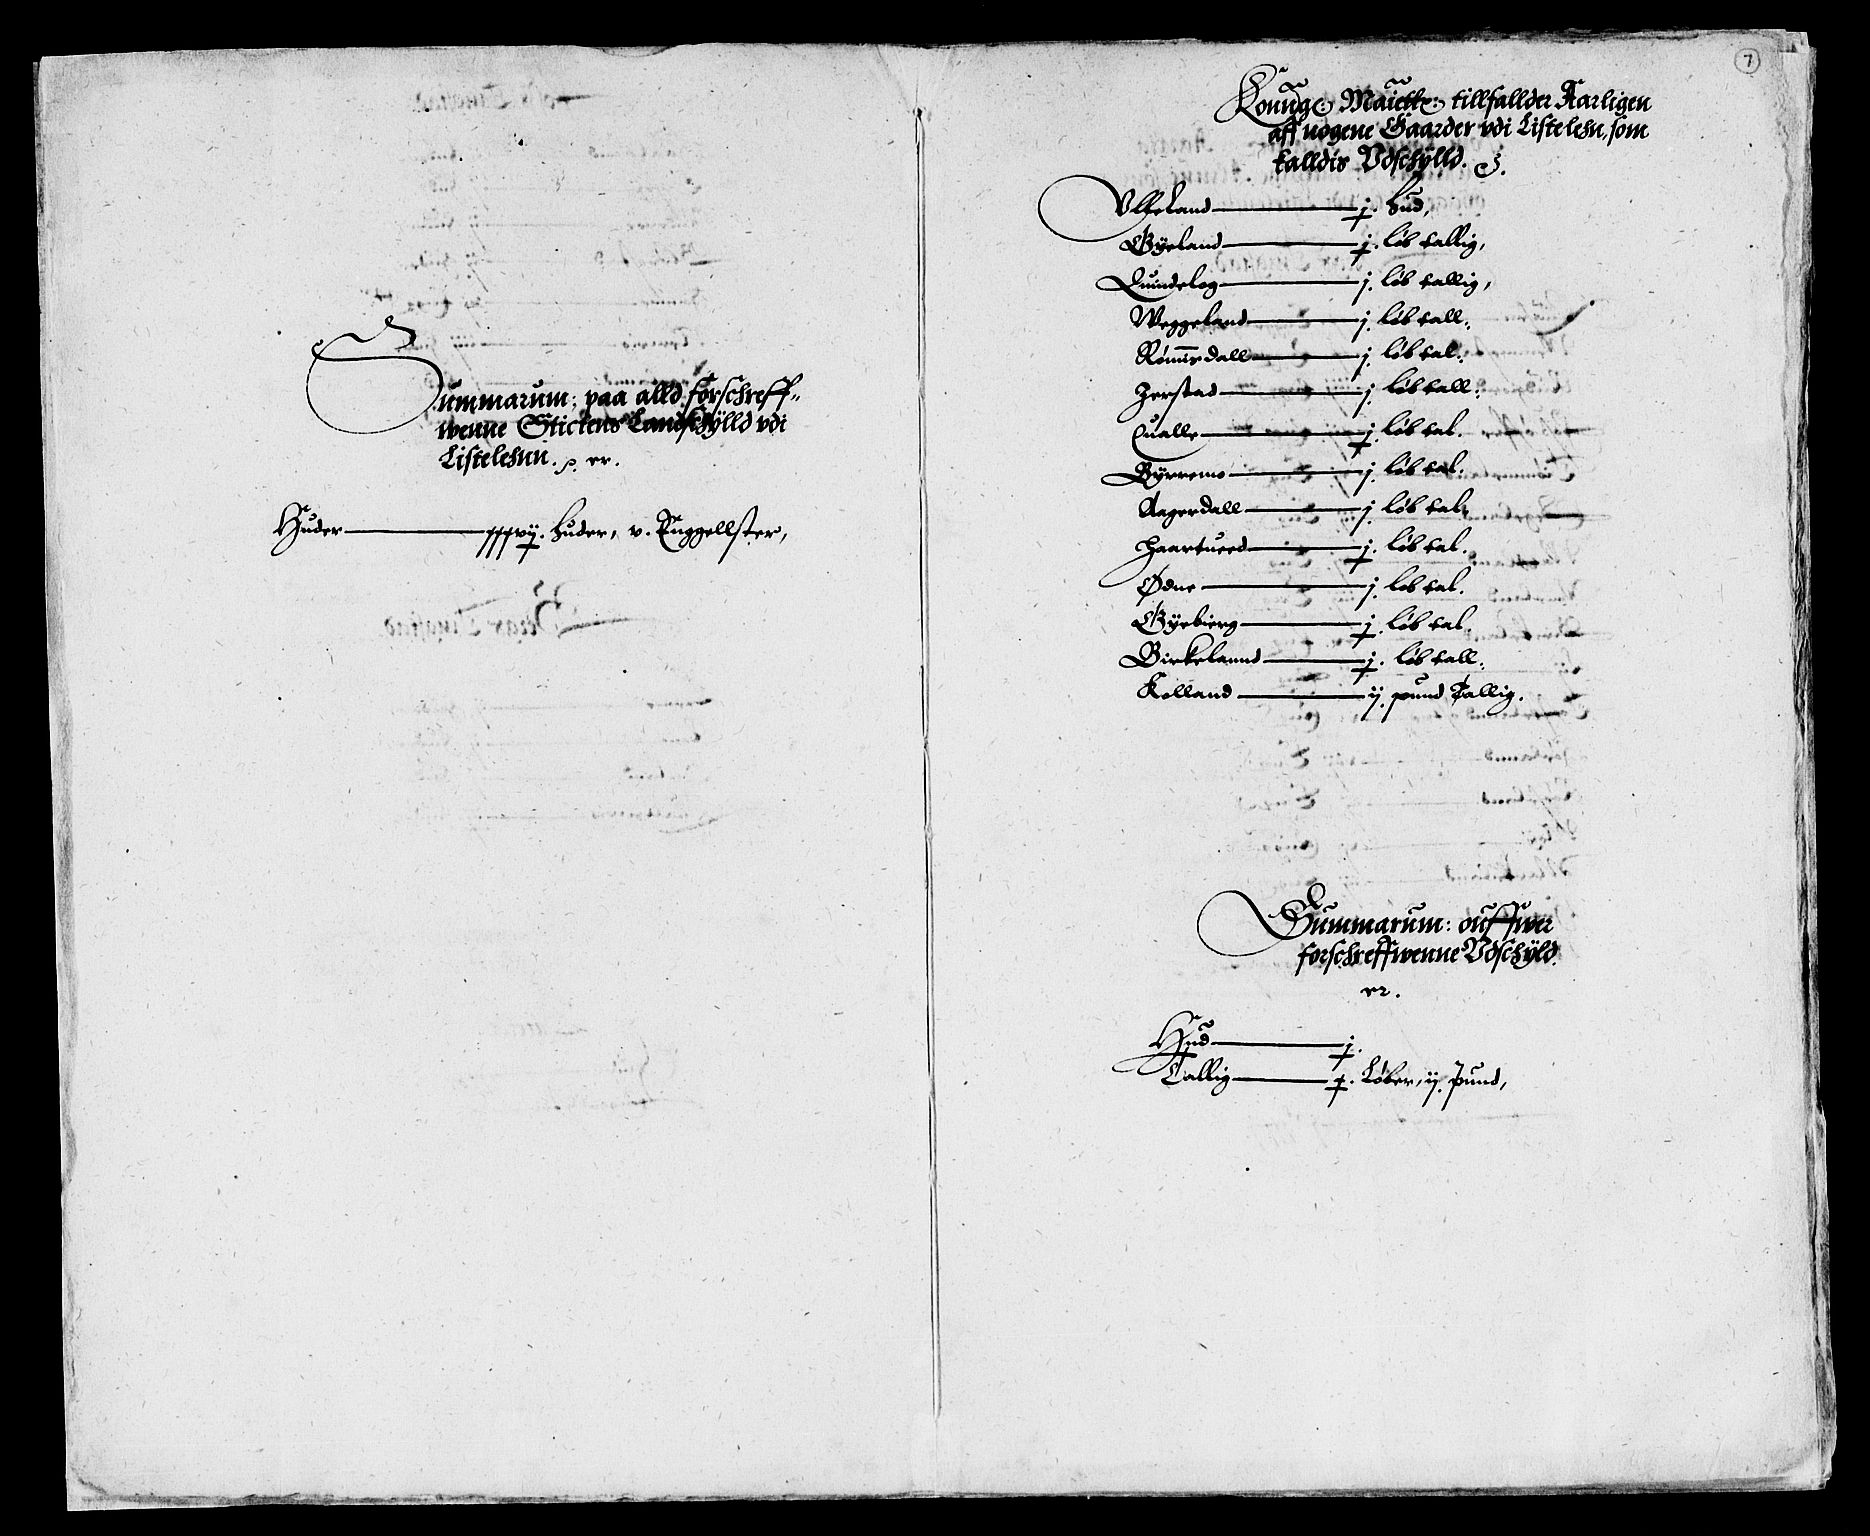 Summarum: paa alld forschreff„
wenne Stictens Landschÿlld vdi
Listelehnn.
Huder huder, v. Enggellster,
7
Konng: Maiettz: tillfallder Aarligen
aff nogene Gaarder vdi Listelehn, som
kalldis Vdschÿlld.
Vlffeland j. hud,
Gÿeland j. løb tallig,
Quindelog j. løb tallig,
Weggeland j. løb tall.
Rømmisdall j. løb tal.
Zerstad j. løb tall.
Qualle j. løb tal.
Bÿrremo j. løb tal.
Aagerdall j. løb tal.
Haartueed j. løb tal.
Ødne j. løb tal.
Gÿebierg j. løb tal.
Birkelannd j. løb tall.
Kolland ij. pund Tallig.
Summarum: ouffwer
forschreffwenne Vdschÿld.
Hud j.
Tallig Løber, ij. pund,